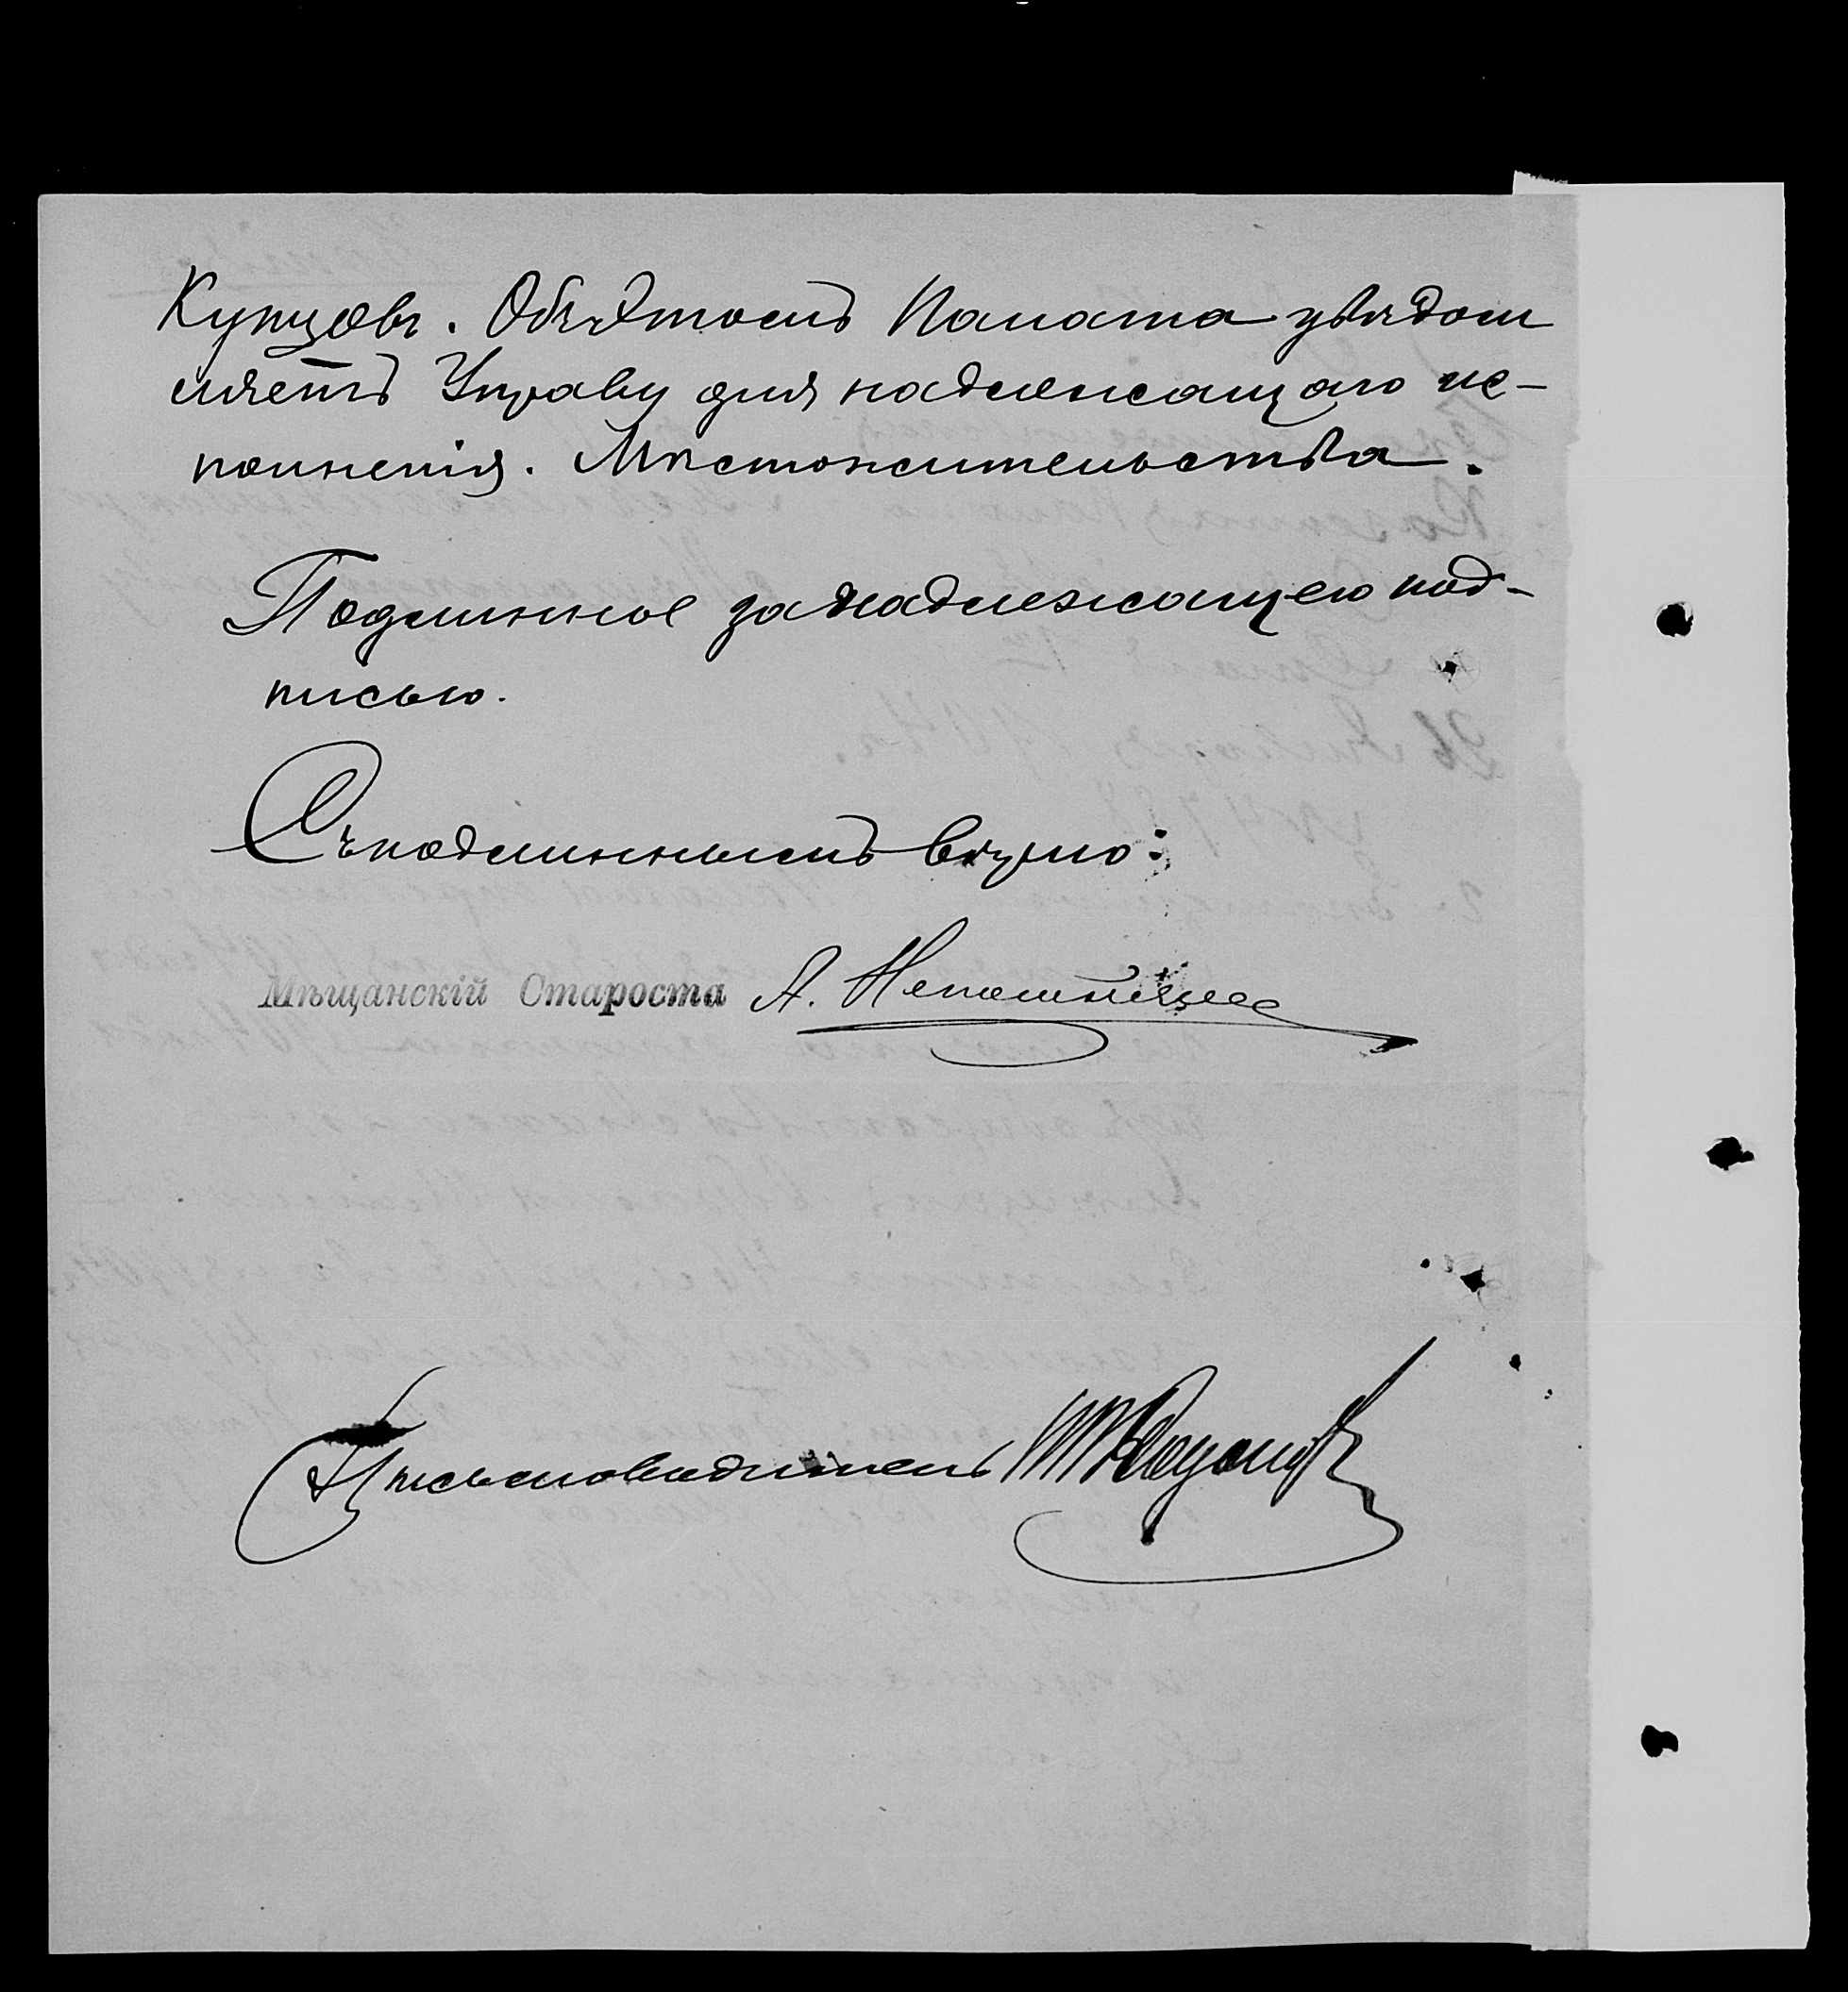 Купцовъ. Объ этомъ Палата увѣдом
ляетъ Управу для надлежащаго ис-
полненія. Мѣстожительства.
Подлинное за надлежащею под-
писью.
Съ подлиннымъ вѣрно:
Мѣщанскій Староста А.
Письмоводитель